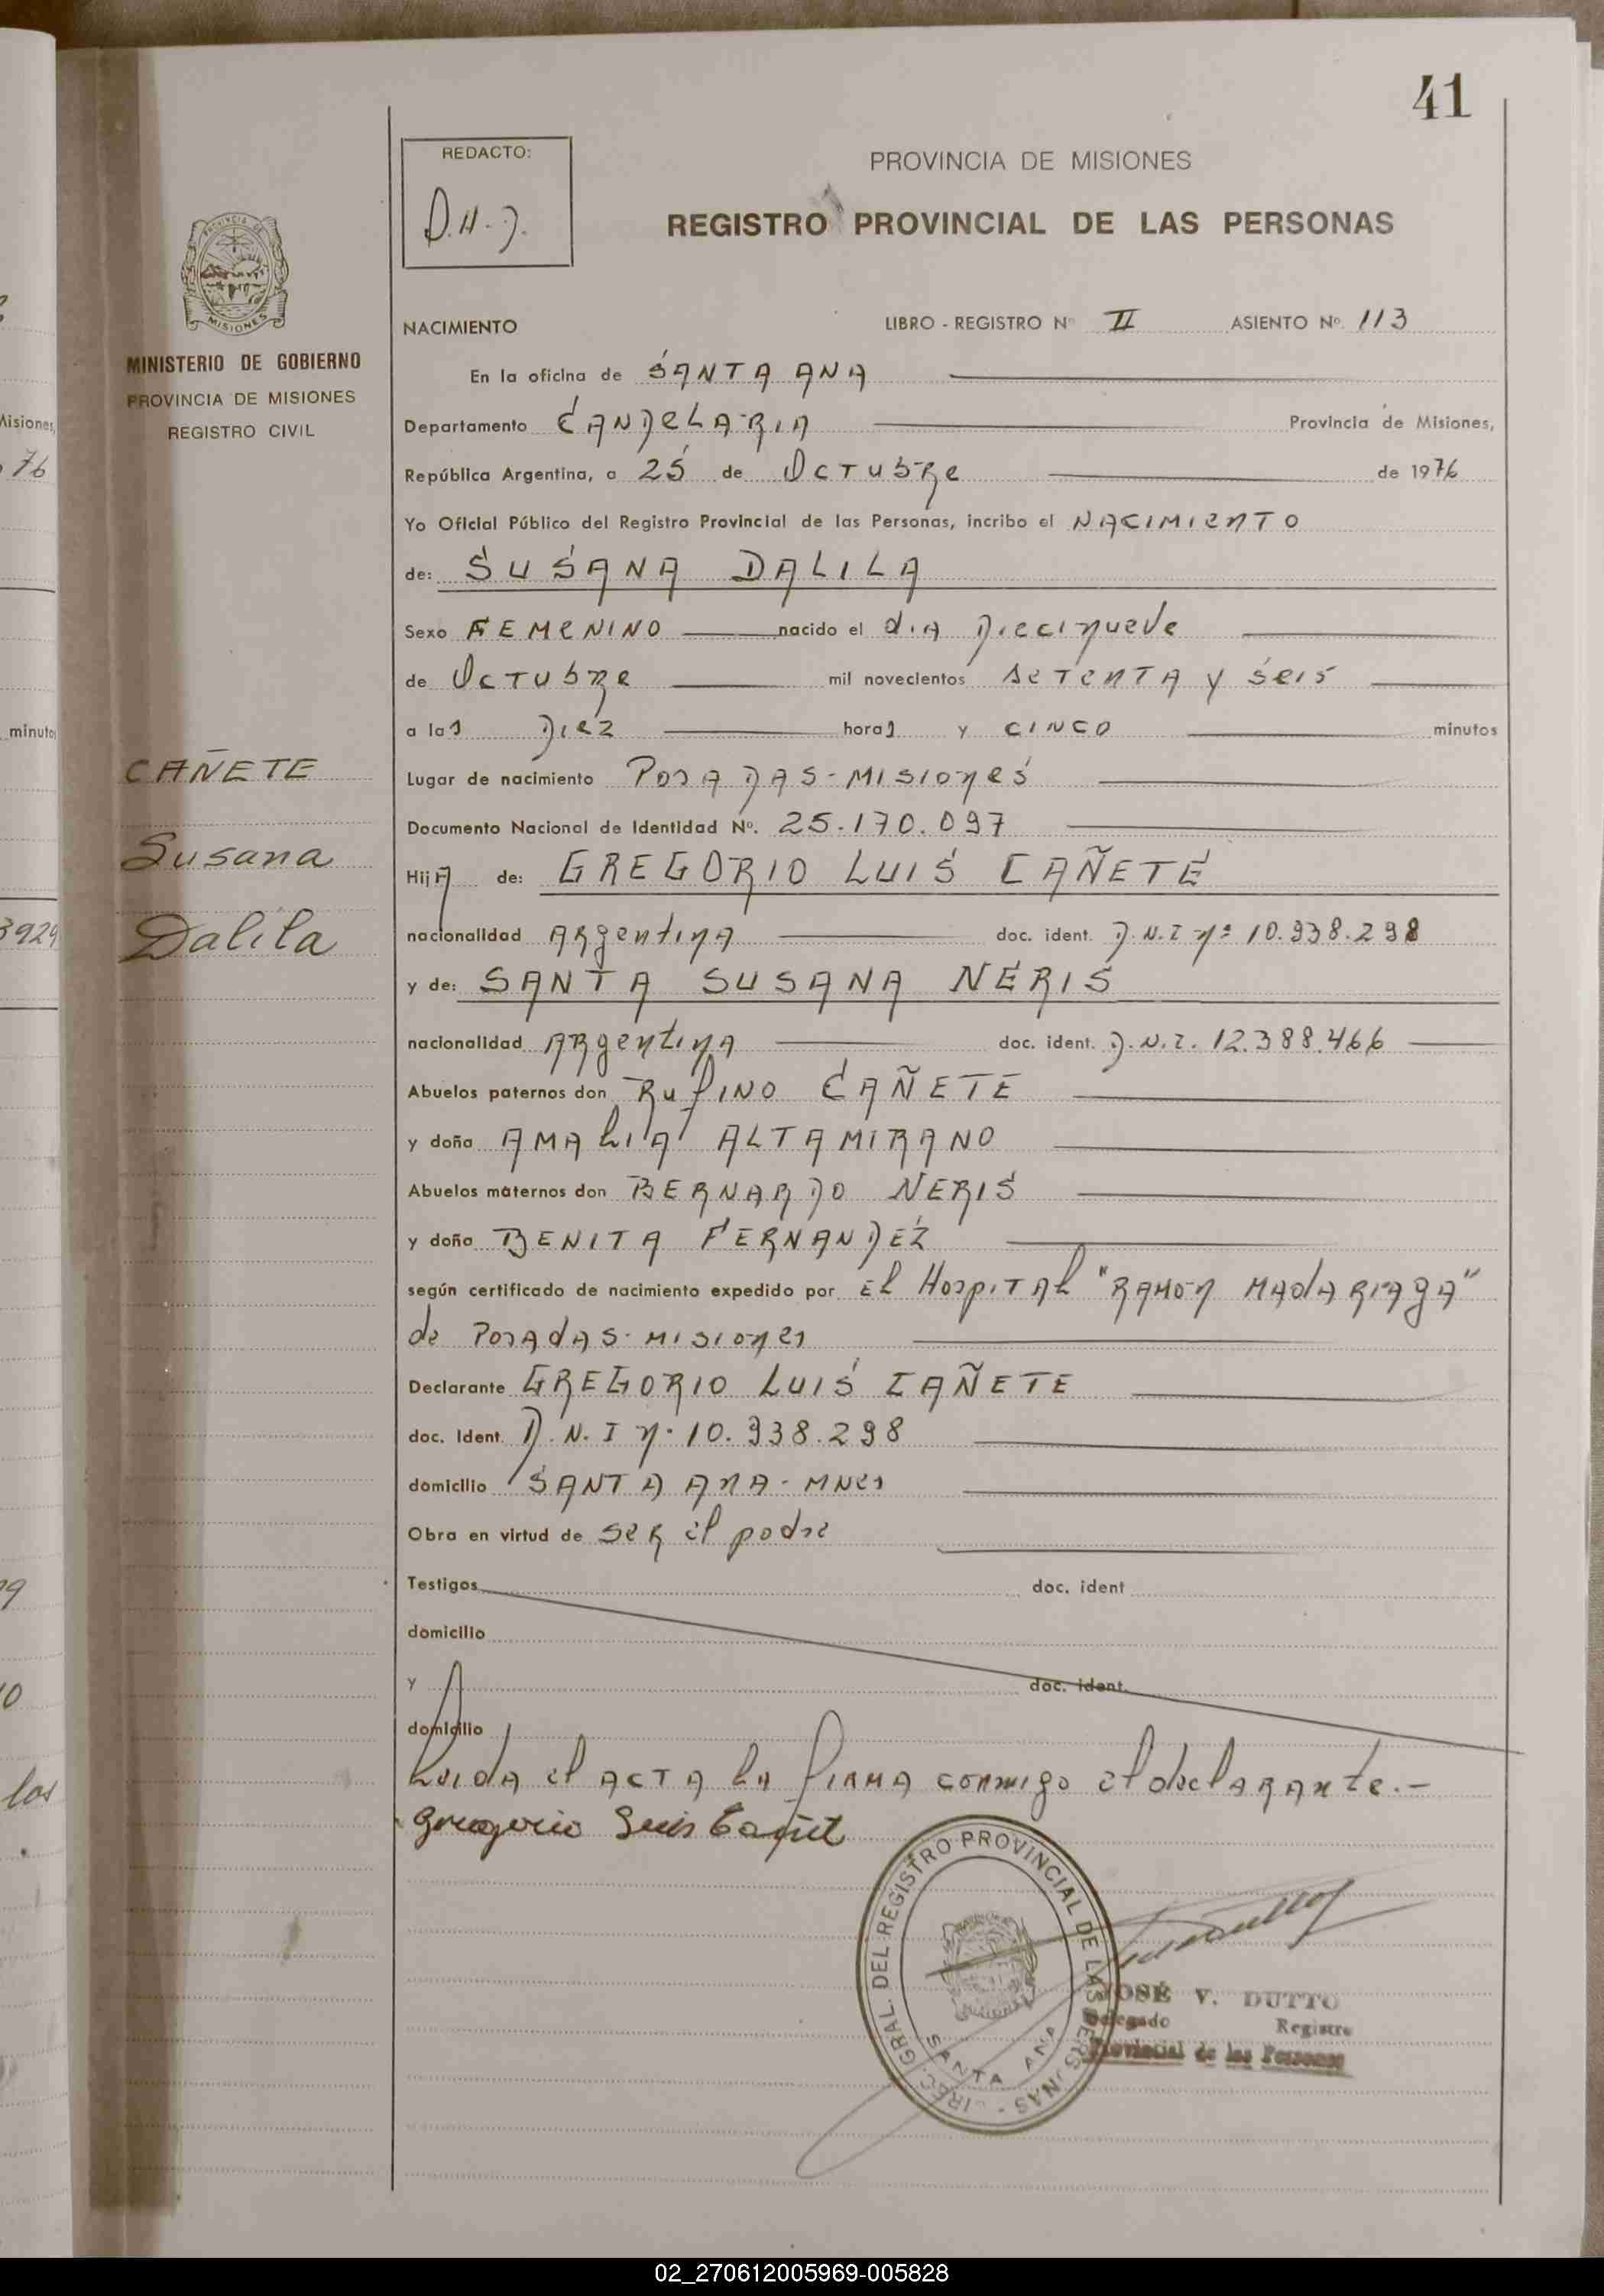 41
REDACTO:
D.H.J.
PROVINCIA DE MISIONES
REGISTRO PROVINCIAL DE LAS PERSONAS
MISIONES
MINISTERIO DE GOBIERNO
PROVINCIA DE MISIONES
REGISTRO CIVIL
NACIMIENTO LIBRO - REGISTRO Nº II ASIENTO Nº 113
En la oficina de SANTA ANA
Departamento CANDELARIA Provincia de Misiones,
República Argentina, a 25 de Octubre de 1976
Yo Oficial Público del Registro Provincial de las Personas, incribo el NACIMIENTO
de: SUSANA DALILA
Sexo FEMENINO nacido el dia Diecinueve
de Octubre mil novecientos setenta y seis
a las Diez horas y CINCO minutos
Lugar de nacimiento Posadas - Misiones
Documento Nacional de Identidad Nº. 25.170.097
CAÑETE
Susana
Dalila
HijA de: GREGORIO LUIS CAÑETE
nacionalidad Argentina doc. ident. D.N.I nº 10.938.298
y de: SANTA SUSANA NERIS
nacionalidad Argentina doc. ident. D.N.I. 12.388.466
Abuelos paternos don Rufino CAÑETE
y doña AMALIA ALTAMIRANO
Abuelos maternos don BERNARDO NERIS
y doña BENITA FERNANDEZ
según certificado de nacimiento expedido por El Hospital "Ramon Madariaga"
de Posadas - Misiones
Declarante GREGORIO LUIS CAÑETE
doc. Ident. D.N.I n. 10.938.298
domicilio SANTA ANA - MNes
Obra en virtud de ser el padre
Testigos doc. ident
domicilio
y doc. ident.
domicilio
Leida el acta la firma conmigo el declarante.-
Gregorio Luis Cañet
GRAL. DEL REGISTRO PROVINCIAL DE LAS PERSONAS
SANTA ANA
JOSÉ V. DUTTO
Delegado Registro
Provincial de las Personas
Misiones,
76
minutos
3929
los
02_270612005969-005828